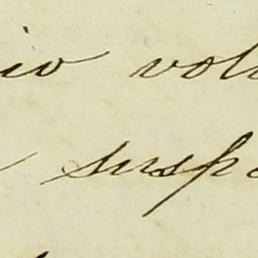 io vol
susp